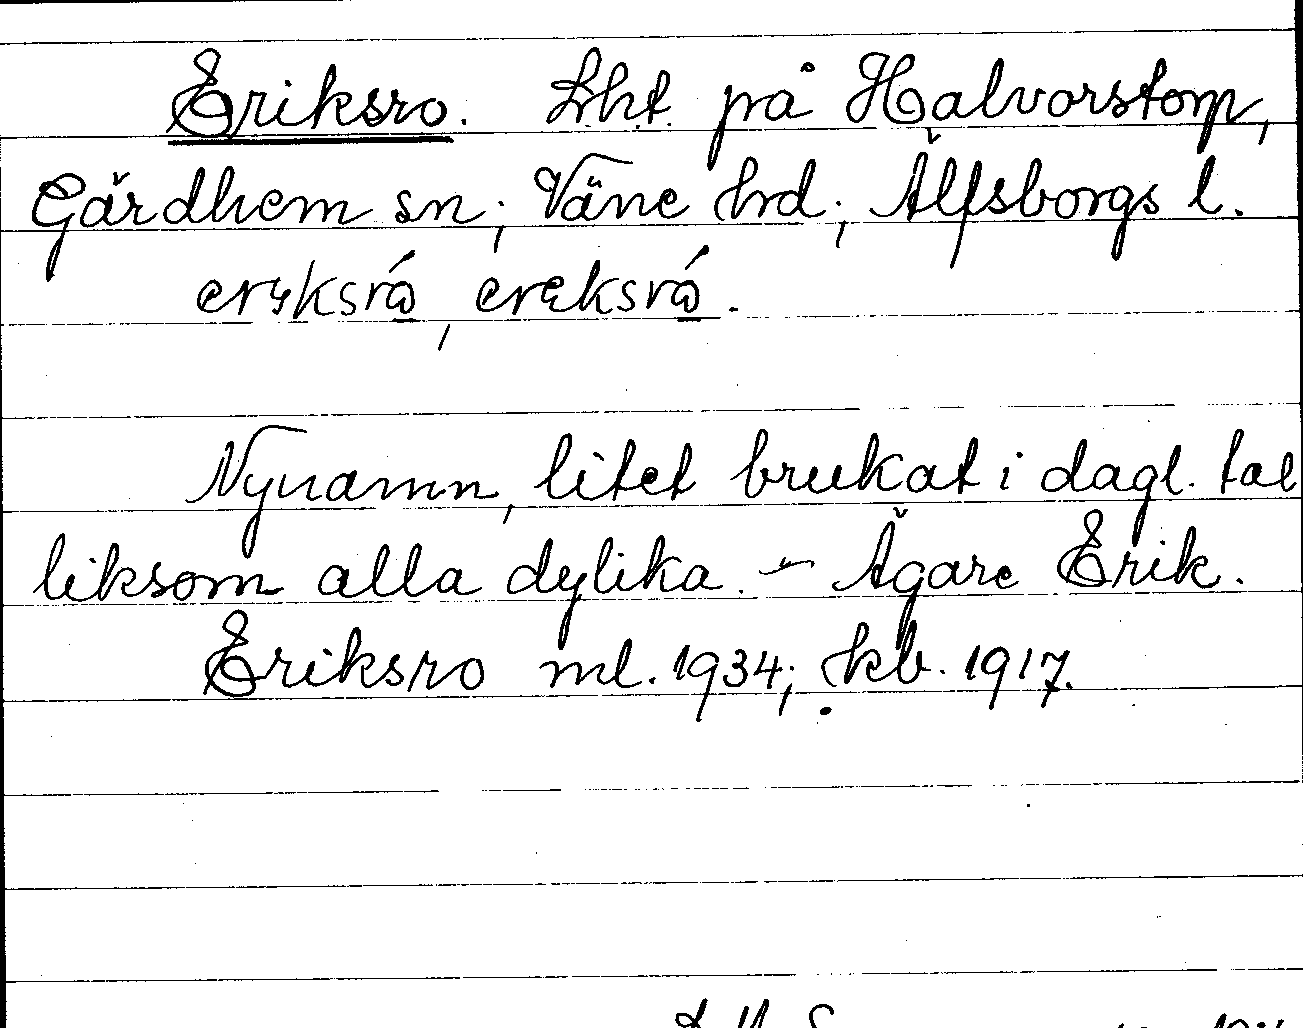 Eriksro. Lht på Halvorstorp,
Gärdhem sn; Väne hd; Älfsborgs l.
Nynamn, litet brukat i dagl. tal
liksom alla dylika. – Ägare Erik.
Eriksro ml. 1934; kb. 1917.